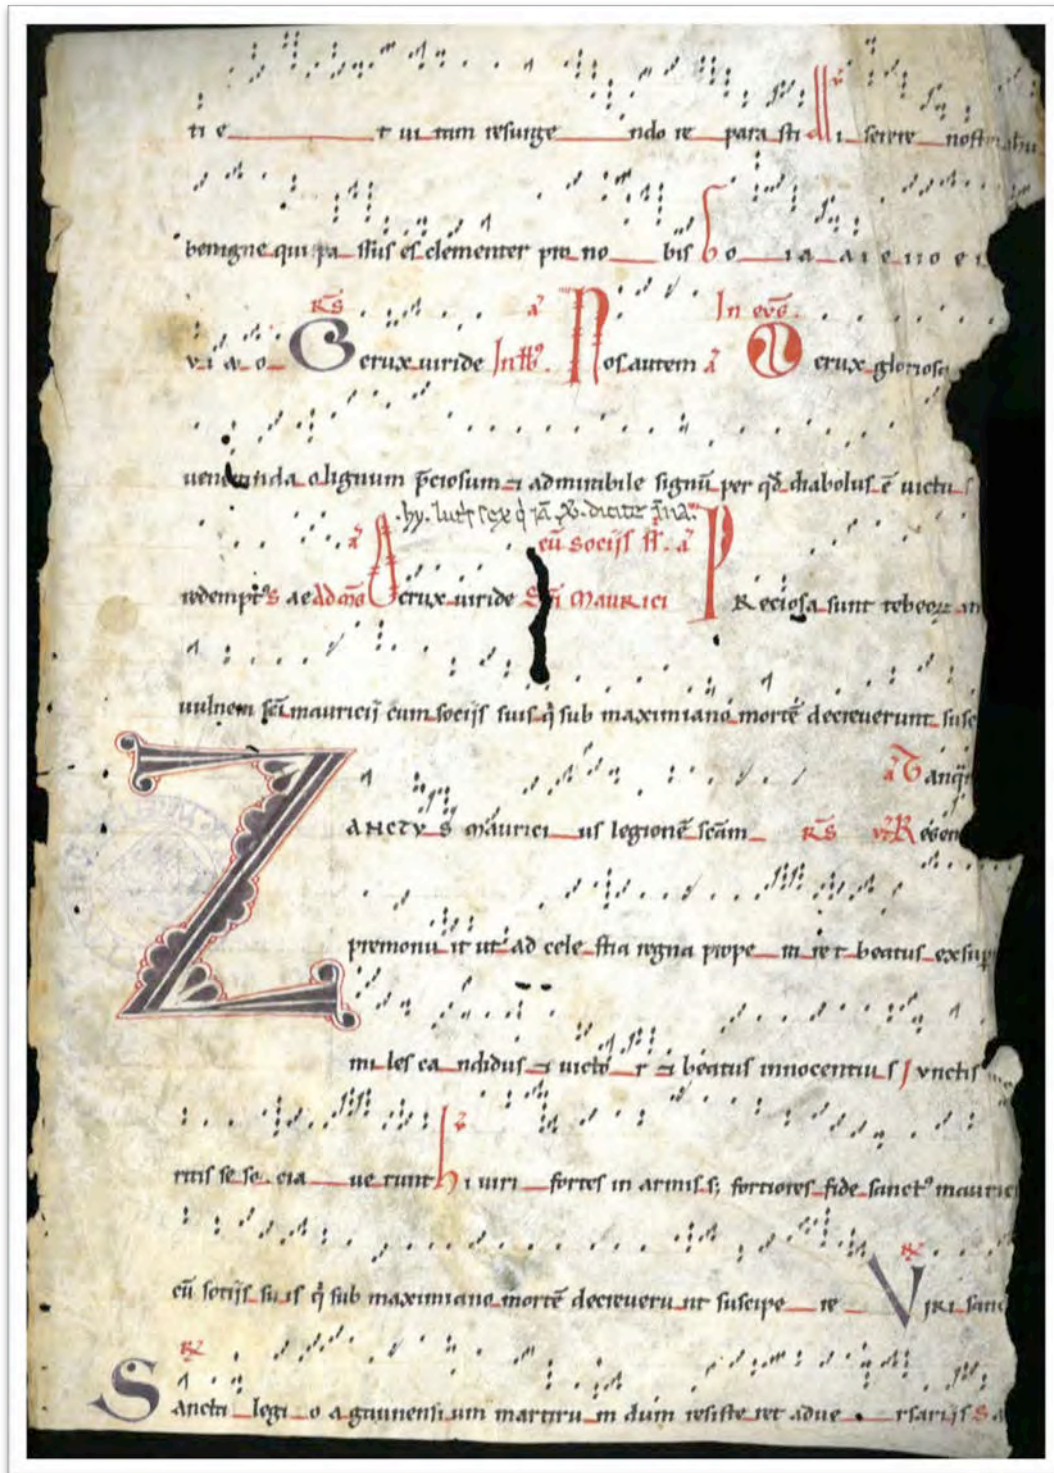 ti e t vi tam resurge ndo re para sti Mi serere nostri
benigne qui pa ssus es clementer pro no bis bo i a a i e n o e i
v i a o O crux viride In N os autem a O crux gloriosa
veneranda o lignum p̄ciosum ⁊ admirabile signū per qđ diabolus ē victus
hy.
a cū socijs a
redempt⁹ ae O crux viride Sc̄i Maurici P Reciosa sunt
vulnera sc̄i mauricij cum socijs suis q̄ sub maximiano mortē decreverunt susc
a T anq̄
Z ANCTVS Maurici us legionē scām R̄S R
premonu it ut ad cele stia regna prope ra re t beatus exsup
mi les ca ndidus ⁊ victo r ⁊ beatus innocentiu s Ivnctis
ritis se so cia ve runt hi viri fortes in armis s; fortiores fide sanct⁹ mauric
cū socijs su is q̄ sub maximiano mortē decreveru nt suscipe re V IRI sanc
S ancta legi o agaunensi um martiru m dum resiste ret adve rsarijs